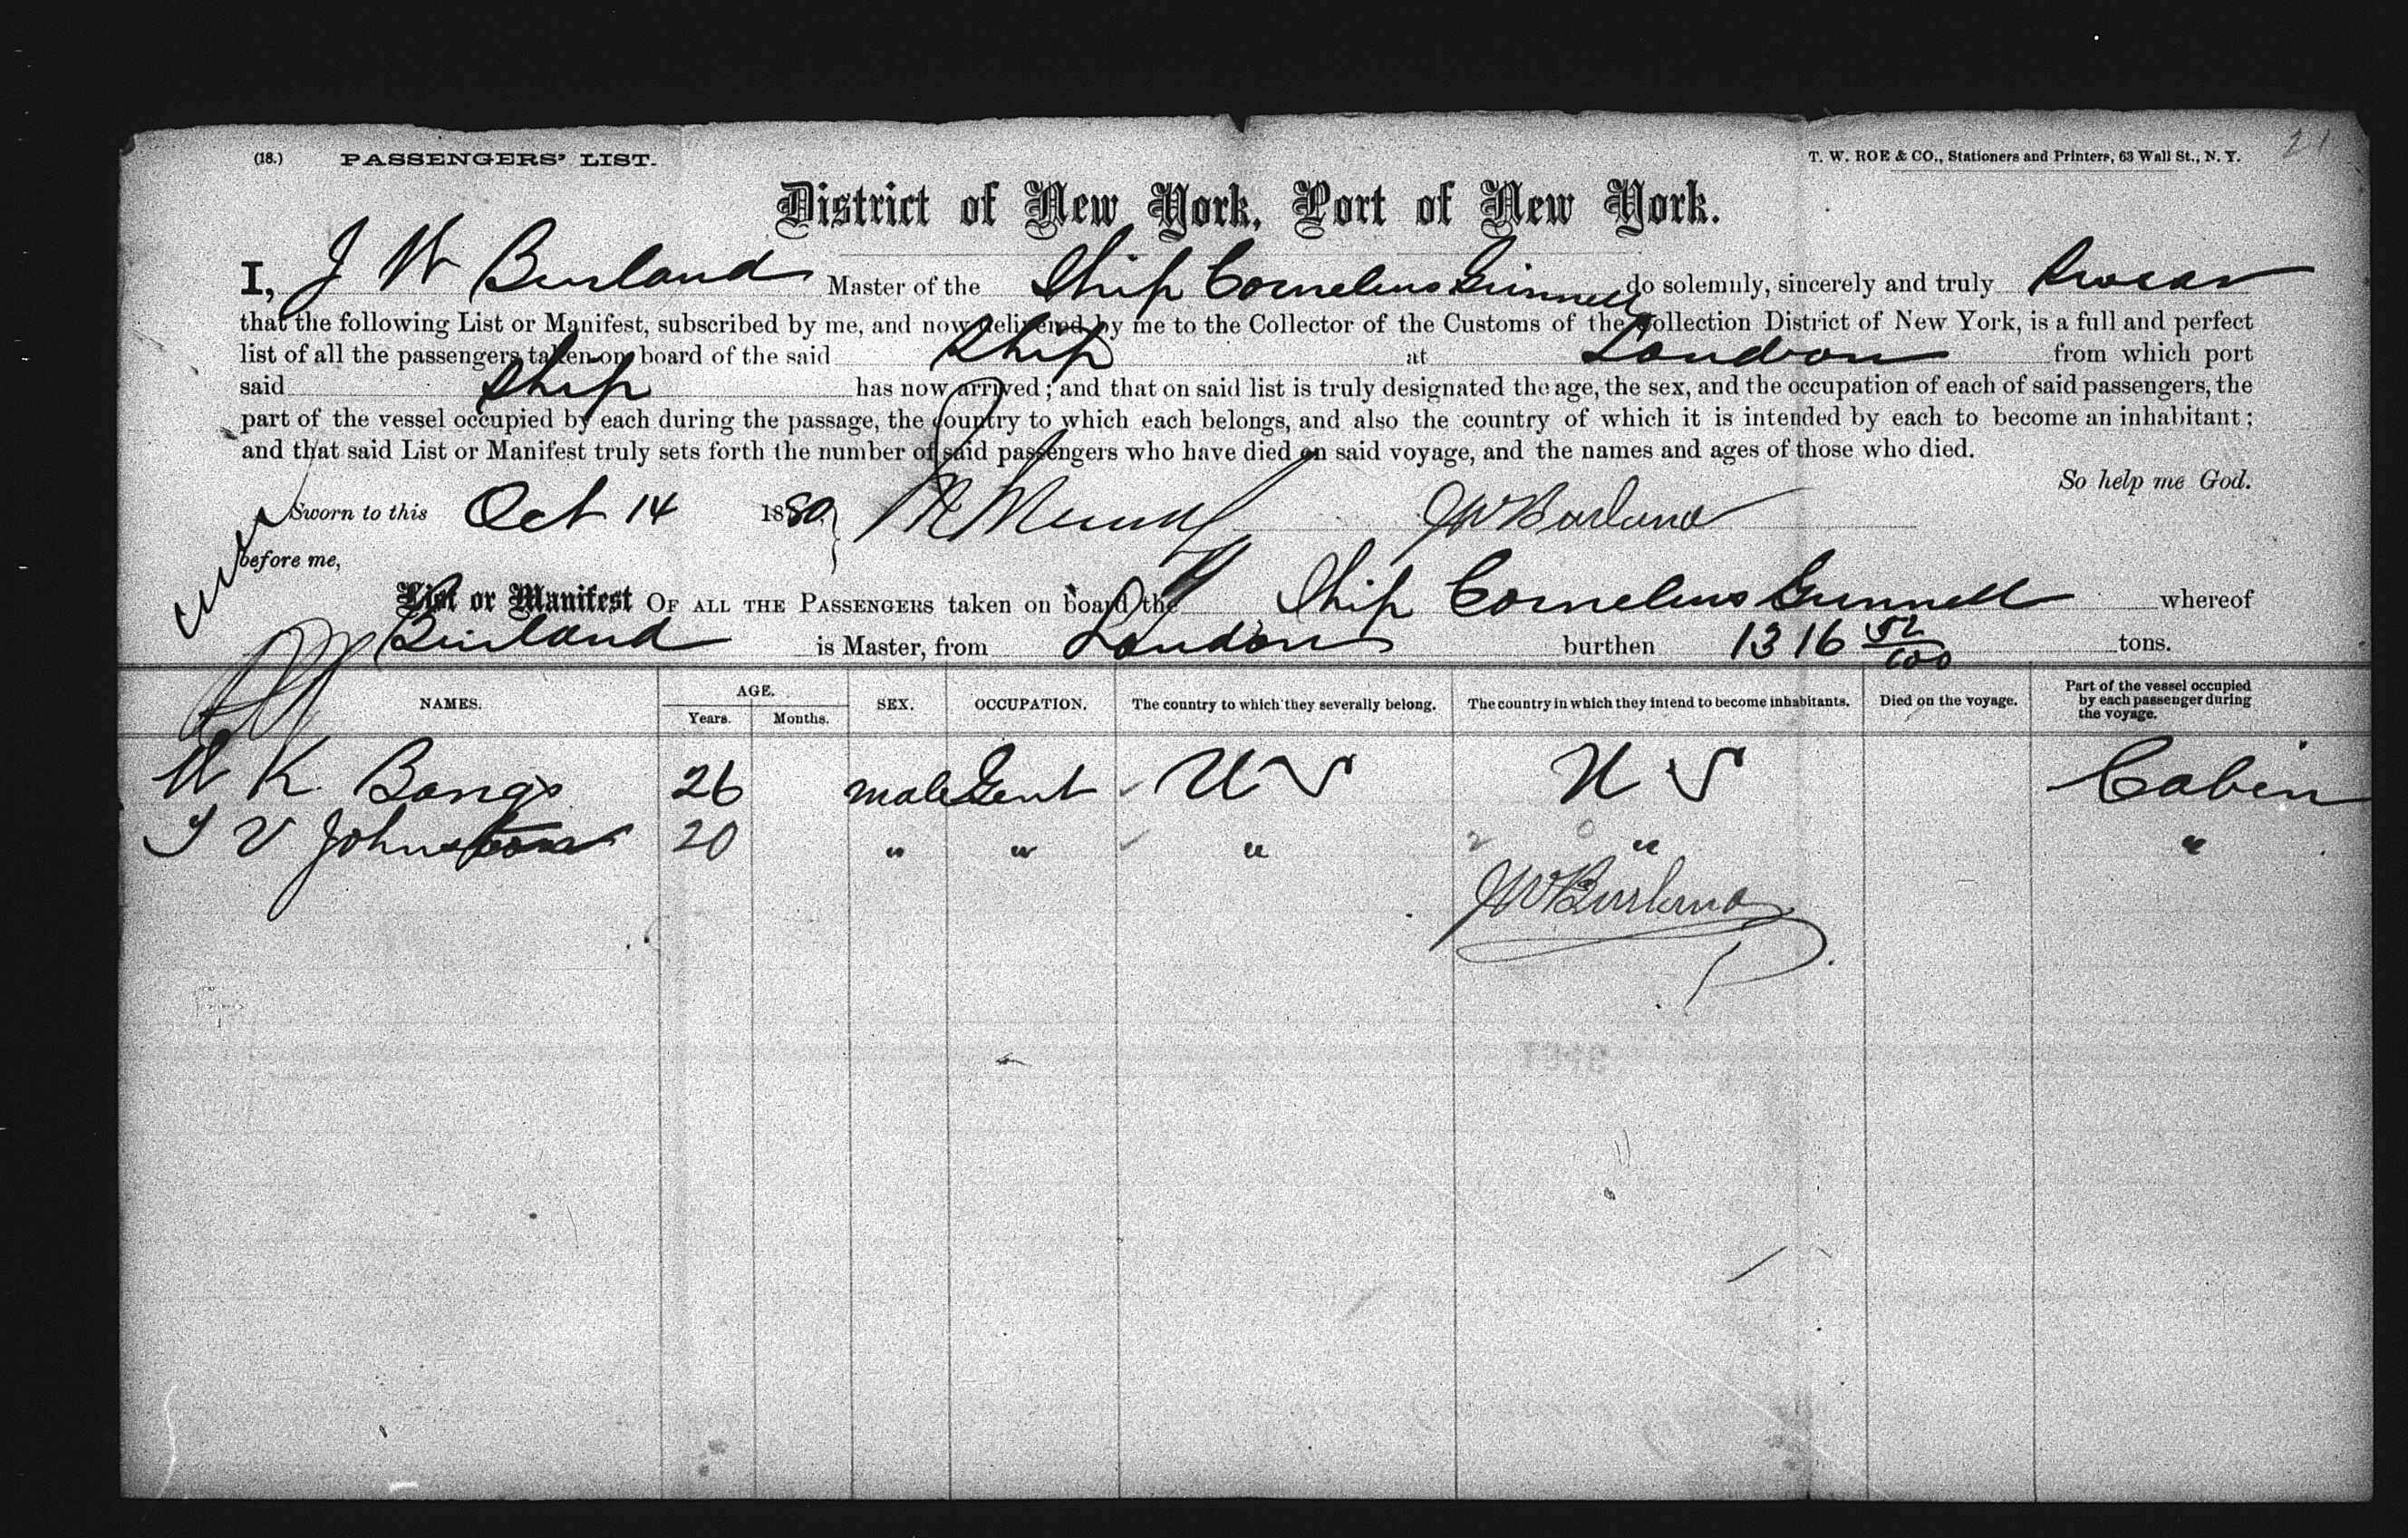 (18.) PASSENGERS' LIST.
T. W. ROE & CO., Stationers and Printers, 63 Wall St., N. Y.
21
District of New York, Port of New York.
I, J W Burland Master of the Ship Cornelius Grinnell do solemnly, sincerely and truly Swear
that the following List or Manifest, subscribed by me, and now delivered by me to the Collector of the Customs of the Collection District of New York, is a full and perfect
list of all the passengers taken on board of the said Ship at London from which port
said Ship has now arrived; and that on said list is truly designated the age, the sex, and the occupation of each of said passengers, the
part of the vessel occupied by each during the passage, the country to which each belongs, and also the country of which it is intended by each to become an inhabitant;
and that said List or Manifest truly sets forth the number of said passengers who have died on said voyage, and the names and ages of those who died.
So help me God.
Sworn to this Oct 14 1880 JW Burland
before me,
List or Manifest OF ALL THE PASSENGERS taken on board the Ship Cornelius Grinnell whereof
Burland is Master, from London burthen 1316 52/100 tons.
NAMES. AGE. Years. Months. SEX. OCCUPATION. The country to which they severally belong. The country in which they intend to become inhabitants. Died on the voyage. Part of the vessel occupied by each passenger during the voyage.
W K Bangs 26 male Gent U S U S Cabin
T V Johnston 20 " " " " "
JW Burland